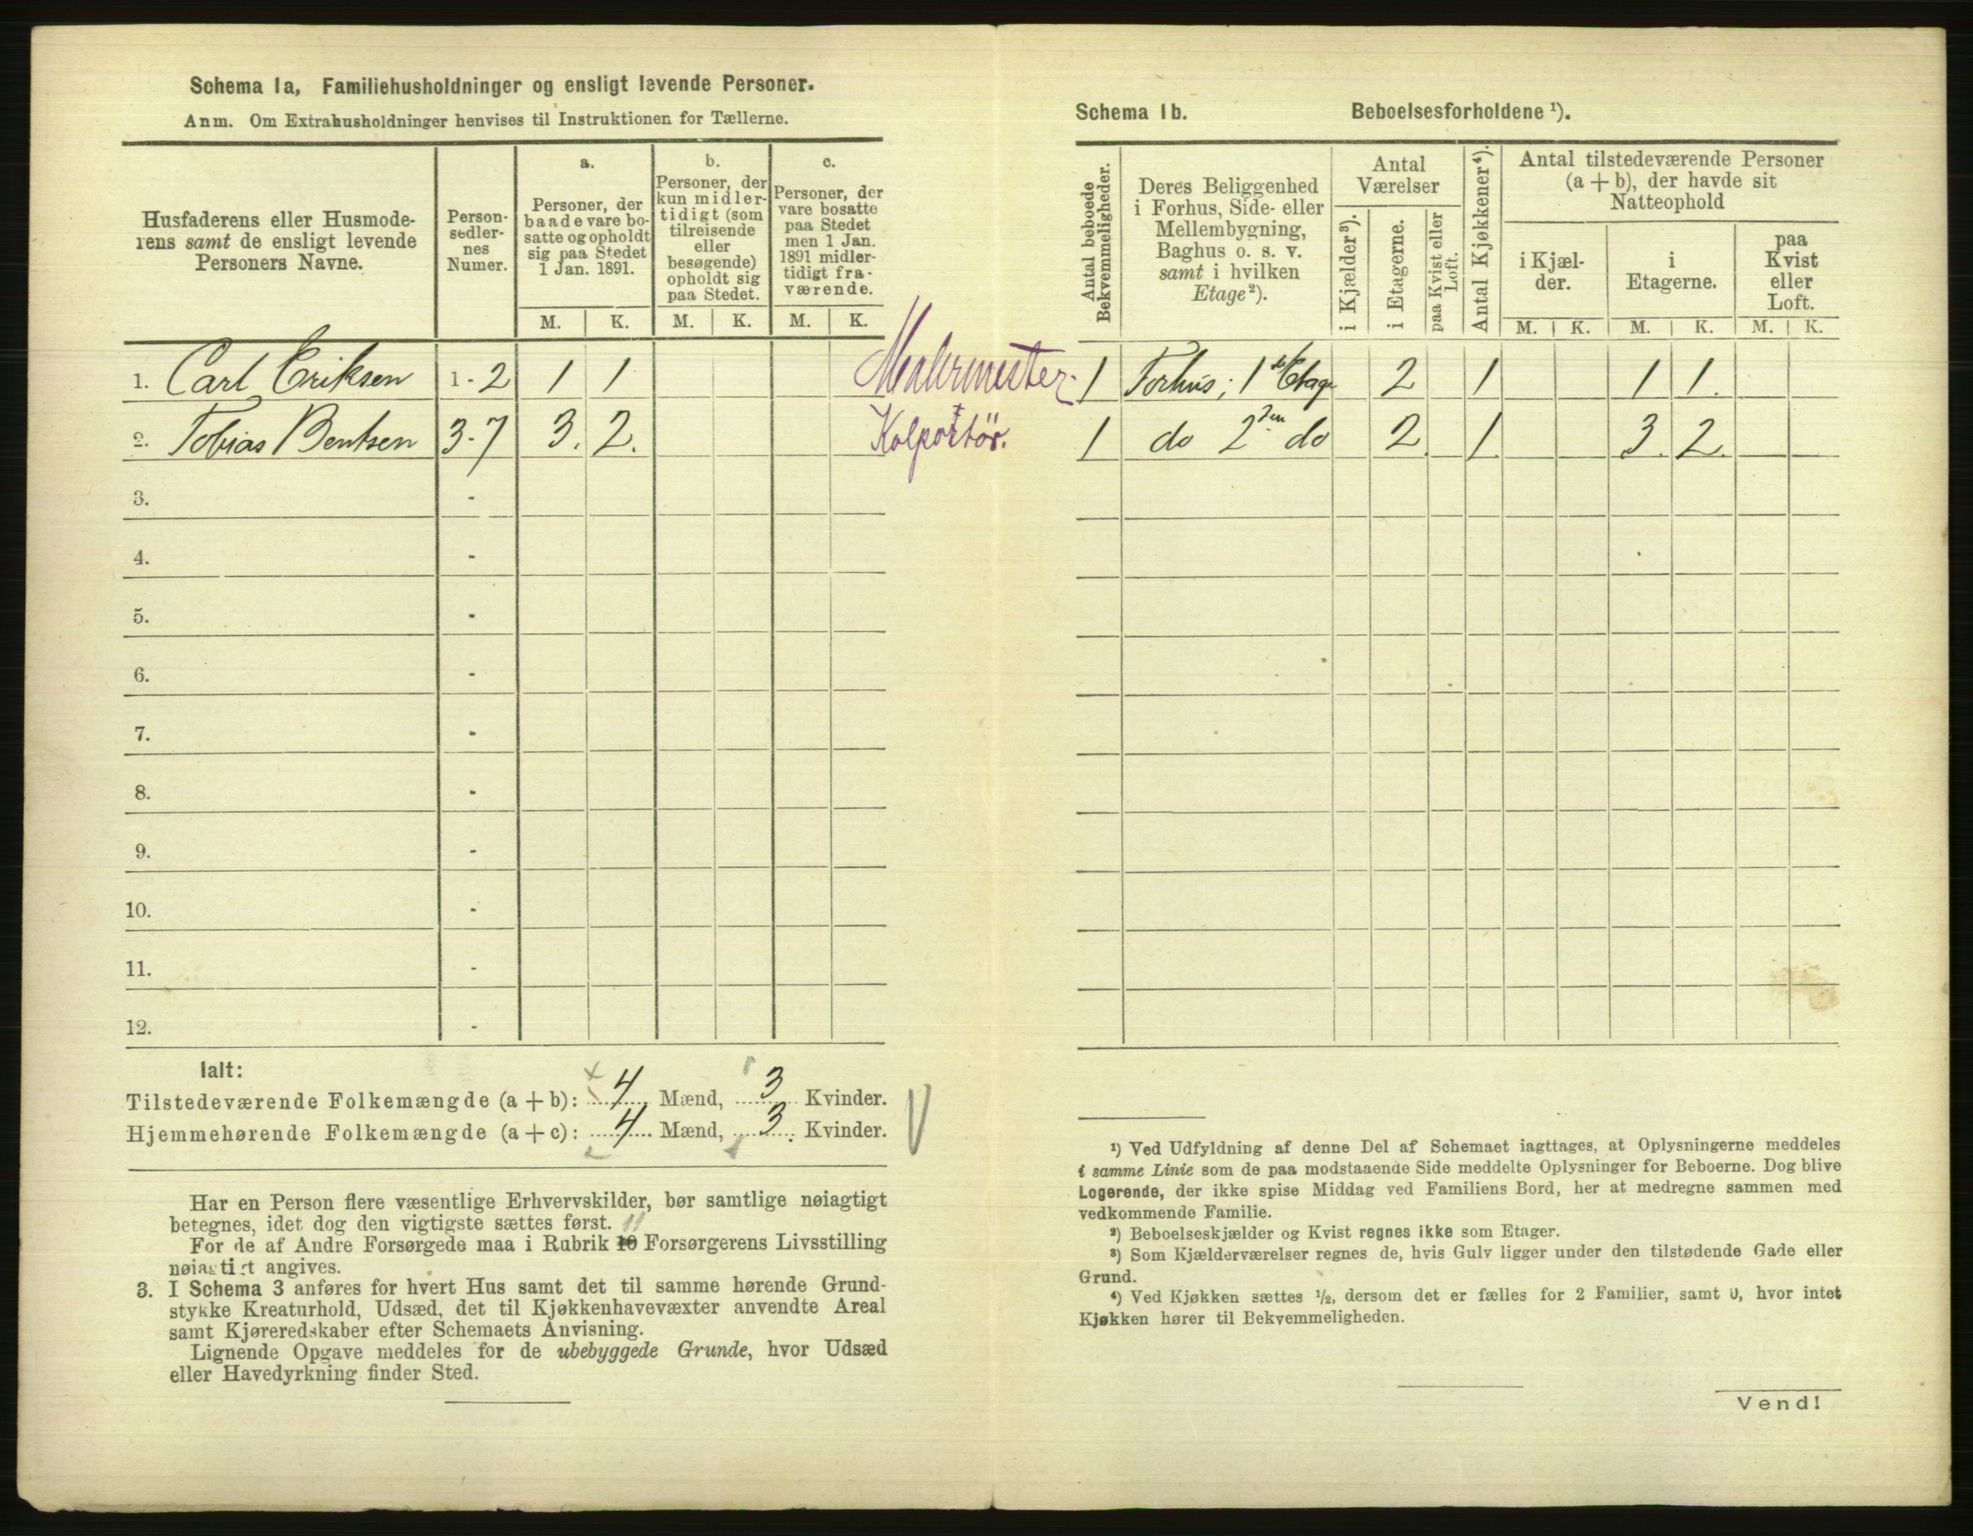 Schema 1a, Familiehusholdninger og ensligt levende Personer.
Anm. Om Extrahusholdninger henvises til Instruktionen for Tællerne.
Husfaderens eller Husmode-
rens samt de ensligt levende
Personers Navne.
Person-
sedler-
nes
Numer.
a.
Personer, der
baade vare bo-
satte og opholdt
sig paa Stedet
1 Jan. 1891.
b.
Personer, der
kun midler-
tidigt (som
tilreisende
eller
besøgende)
opholdt sig
paa Stedet.
c.
Personer, der
vare bosatte
paa Stedet
men 1 Jan.
1891 midler-
tidigt fra-
værende.
M. K. M. K. M. K.
1. Carl Eriksen 1-2 1 1 Malermester.
2. Tobias Bentsen 3-7 3. 2. Kolportör.
3. -
4. -
5. -
6. -
7. -
8. -
9. -
10. -
11. -
12. -
Ialt:
Tilstedeværende Folkemængde (a + b): 4 Mænd, 3 Kvinder.
Hjemmehørende Folkemængde (a + c): 4 Mænd, 3. Kvinder.
Har en Person flere væsentlige Erhvervskilder, bør samtlige nøiagtigt
betegnes, idet dog den vigtigste sættes først.
11
For de af Andre Forsørgede maa i Rubrik 10 Forsørgerens Livsstilling
nøiagtigt angives.
3. I Schema 3 anføres for hvert Hus samt det til samme hørende Grund-
stykke Kreaturhold, Udsæd, det til Kjøkkenhavevæxter anvendte Areal
samt Kjøreredskaber efter Schemaets Anvisning.
Lignende Opgave meddeles for de ubebyggede Grunde, hvor Udsæd
eller Havedyrkning finder Sted.
Schema 1b. Beboelsesforholdene ¹).
Antal beboede
Bekvemmeligheder.
Deres Beliggenhed
i Forhus, Side- eller
Mellembygning,
Baghus o. s. v.
samt i hvilken
Etage²).
Antal
Værelser
i Kjælder³).
i Etagerne.
paa Kvist eller
Loft.
Antal Kjøkkener⁴).
Antal tilstedeværende Personer
(a + b), der havde sit
Natteophold
i Kjæl-
der.
i
Etagerne.
paa
Kvist
eller
Loft.
M. K. M. K. M. K.
1 Forhus; 1ste Etage 2 1 1 1.
1 do 2den do 2. 1 3. 2.
¹) Ved Udfyldning af denne Del af Schemaet iagttages, at Oplysningerne meddeles
i samme Linie som de paa modstaaende Side meddelte Oplysninger for Beboerne. Dog blive
Logerende, der ikke spise Middag ved Familiens Bord, her at medregne sammen med
vedkommende Familie.
²) Beboelseskjælder og Kvist regnes ikke som Etager.
³) Som Kjælderværelser regnes de, hvis Gulv ligger under den tilstødende Gade eller
Grund.
⁴) Ved Kjøkken sættes ½, dersom det er fælles for 2 Familier, samt 0, hvor intet
Kjøkken hører til Bekvemmeligheden.
Vend!